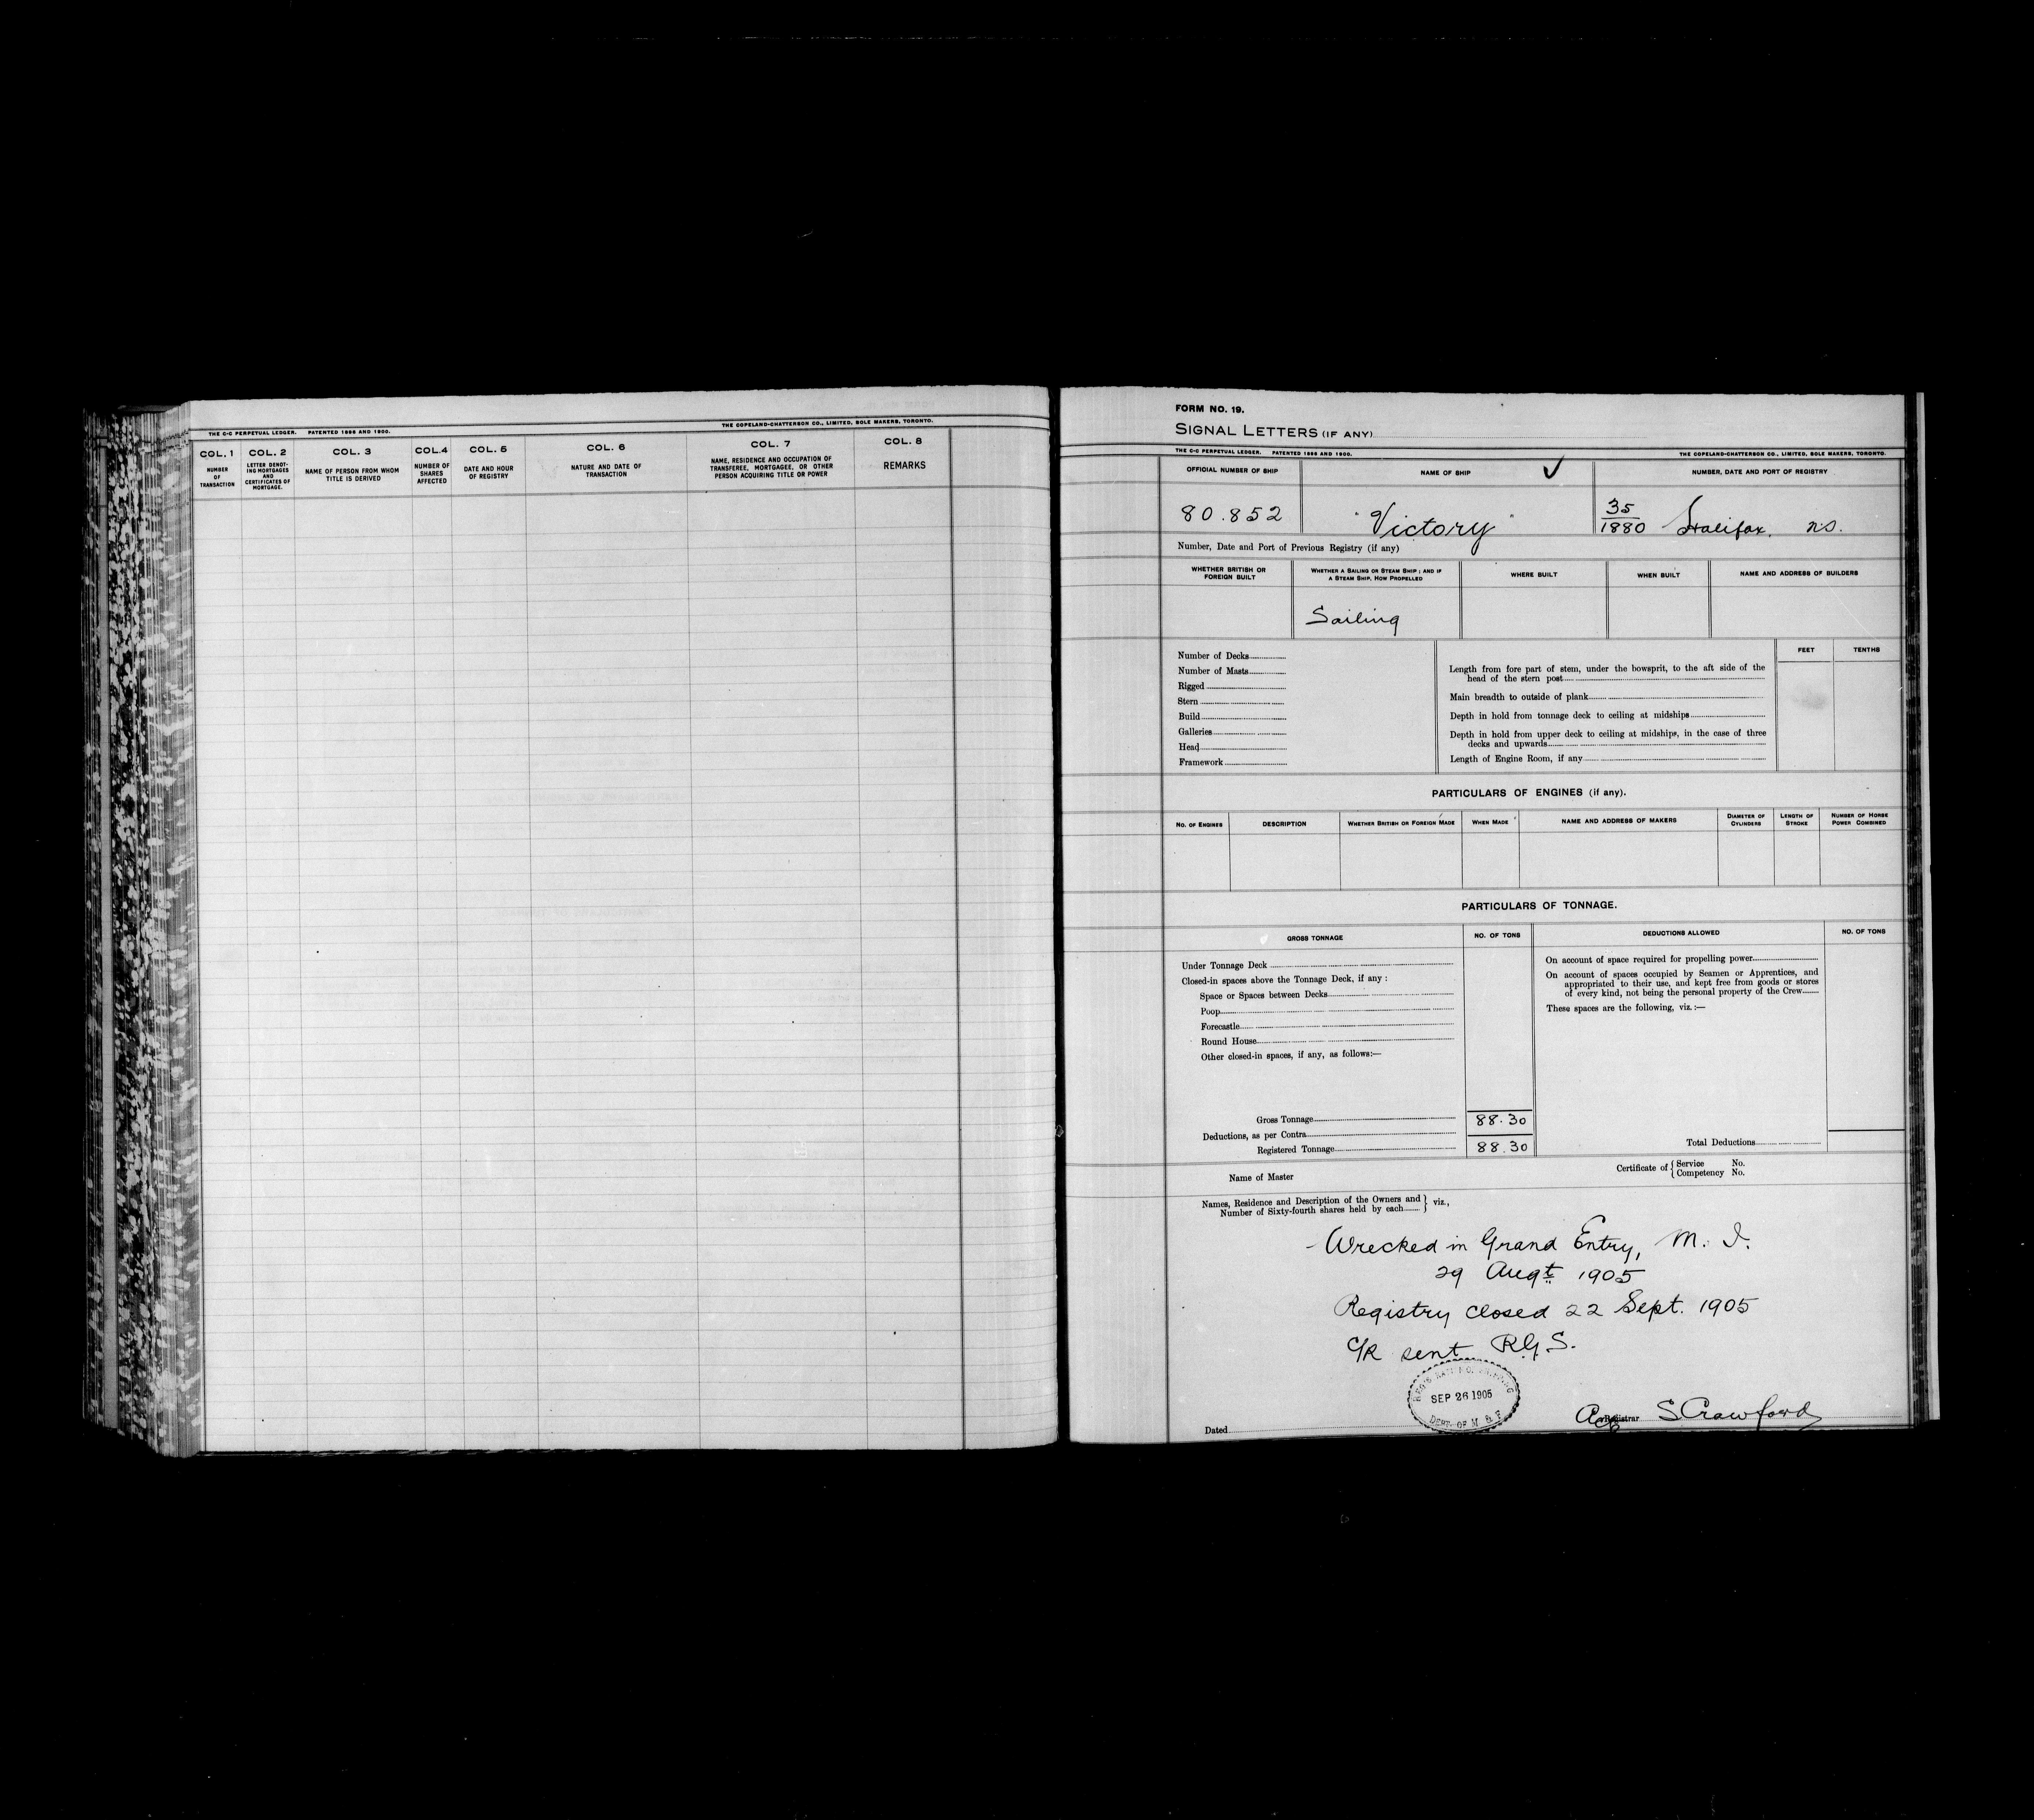 THE C-C PERPETUAL LEDGER. PATENTED 1888 AND 1900. THE COPELAND-CHATTERSON CO., LIMITED, SOLE MAKERS, TORONTO.
COL. 1 COL. 2 COL. 3 COL. 4 COL. 5 COL. 6 COL. 7 COL. 8
NUMBER OF TRANSACTION
LETTER DENOTING MORTGAGES AND CERTIFICATES OF MORTGAGE.
NAME OF PERSON FROM WHOM TITLE IS DERIVED
NUMBER OF SHARES AFFECTED
DATE AND HOUR OF REGISTRY
NATURE AND DATE OF TRANSACTION
NAME, RESIDENCE AND OCCUPATION OF TRANSFEREE, MORTGAGEE, OR OTHER PERSON ACQUIRING TITLE OR POWER
REMARKS
FORM NO. 19.
SIGNAL LETTERS (IF ANY)
THE C-C PERPETUAL LEDGER. PATENTED 1888 AND 1900. THE COPELAND-CHATTERSON CO., LIMITED, SOLE MAKERS, TORONTO.
OFFICIAL NUMBER OF SHIP NAME OF SHIP NUMBER, DATE AND PORT OF REGISTRY
80.852 "Victory" 35/1880 Halifax, N.S.
Number, Date and Port of Previous Registry (if any)
WHETHER BRITISH OR FOREIGN BUILT
WHETHER A SAILING OR STEAM SHIP; AND IF A STEAM SHIP, HOW PROPELLED
WHERE BUILT
WHEN BUILT
NAME AND ADDRESS OF BUILDERS
Sailing
FEET TENTHS
Number of Decks
Number of Masts
Rigged
Stern
Build
Galleries
Head
Framework
Length from fore part of stem, under the bowsprit, to the aft side of the
head of the stern post
Main breadth to outside of plank
Depth in hold from tonnage deck to ceiling at midships
Depth in hold from upper deck to ceiling at midships, in the case of three
decks and upwards
Length of Engine Room, if any
PARTICULARS OF ENGINES (if any).
NO. OF ENGINES DESCRIPTION WHETHER BRITISH OR FOREIGN MADE WHEN MADE NAME AND ADDRESS OF MAKERS DIAMETER OF CYLINDERS LENGTH OF STROKE NUMBER OF HORSE POWER COMBINED
PARTICULARS OF TONNAGE.
GROSS TONNAGE NO. OF TONS DEDUCTIONS ALLOWED NO. OF TONS
Under Tonnage Deck
Closed-in spaces above the Tonnage Deck, if any:
Space or Spaces between Decks
Poop
Forecastle
Round House
Other closed-in spaces, if any, as follows:—
On account of space required for propelling power
On account of spaces occupied by Seamen or Apprentices, and
appropriated to their use, and kept free from goods or stores
of every kind, not being the personal property of the Crew
These spaces are the following, viz.:—
Gross Tonnage 88.30
Deductions, as per Contra
Registered Tonnage 88.30
Total Deductions
Name of Master
Certificate of { Service No.
Competency No.
Names, Residence and Description of the Owners and } viz.,
Number of Sixty-fourth shares held by each
Wrecked in Grand Entry, M. I.
29 Augt 1905
Registry closed 22 Sept. 1905
C/R sent R.G.S.
SEP 26 1905
DEPT. OF M & F
Dated
Actg Registrar S Crawford